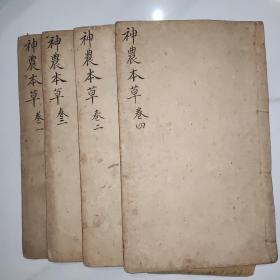 神農本草 卷一
神農本草 卷三
神農本草 卷二
神農本草 卷四